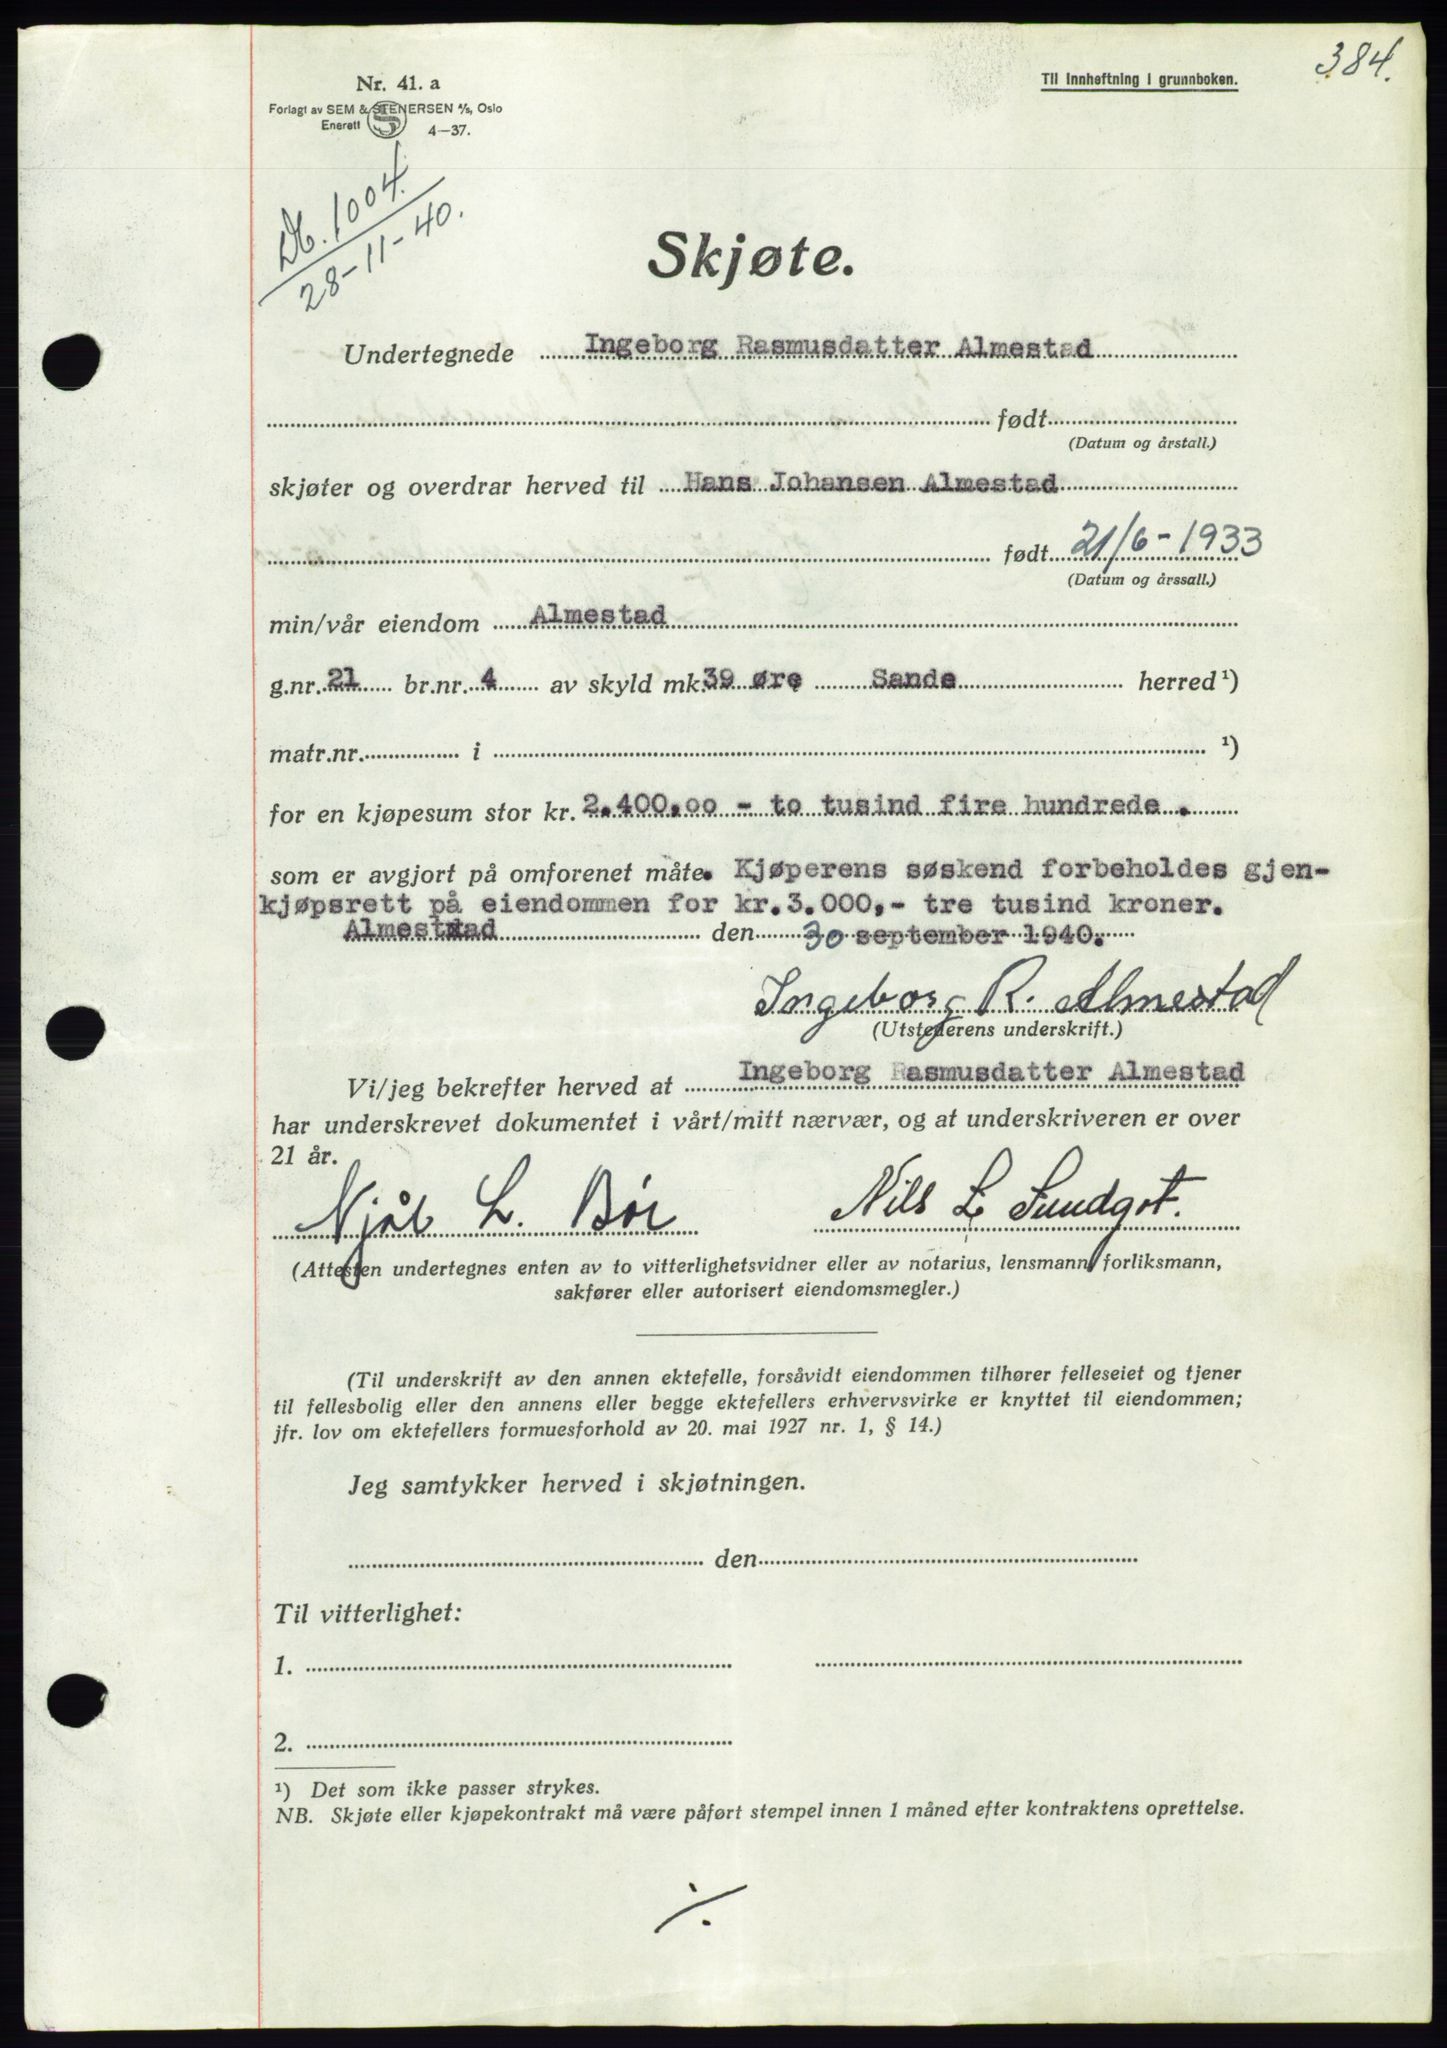 384.
Til innheftning i grunnboken.
Nr. 41. a
Forlagt av SEM & STENERSEN A/S, Oslo
Enerett S 4-37.
Db. 1004.
28-11-40.
Skjøte.
Undertegnede Ingeborg Rasmusdatter Almestad
født
(Datum og årstall.)
skjøter og overdrar herved til Hans Johansen Almestad
født 21/6-1933
(Datum og årssall.)
min/vår eiendom Almestad
g.nr. 21 br.nr. 4 av skyld mk. 39 øre Sande herred ¹)
matr.nr. i ¹)
for en kjøpesum stor kr. 2.400,00 - to tusind fire hundrede .
som er avgjort på omforenet måte. Kjøperens søskend forbeholdes gjen-
kjøpsrett på eiendommen for kr.3.000,- tre tusind kroner.
Almestad den 30 september 1940.
Ingeborg R. Almestad
(Utstederens underskrift.)
Vi/jeg bekrefter herved at Ingeborg Rasmusdatter Almestad
har underskrevet dokumentet i vårt/mitt nærvær, og at underskriveren er over
21 år.
Njål L. Bøe Nils L Sundgot.
(Attesten undertegnes enten av to vitterlighetsvidner eller av notarius, lensmann, forliksmann,
sakfører eller autorisert eiendomsmegler.)
(Til underskrift av den annen ektefelle, forsåvidt eiendommen tilhører felleseiet og tjener
til fellesbolig eller den annens eller begge ektefellers erhvervsvirke er knyttet til eiendommen;
jfr. lov om ektefellers formuesforhold av 20. mai 1927 nr. 1, § 14.)
Jeg samtykker herved i skjøtningen.
den
Til vitterlighet:
1.
2.
¹) Det som ikke passer strykes.
NB. Skjøte eller kjøpekontrakt må være påført stempel innen 1 måned efter kontraktens oprettelse.